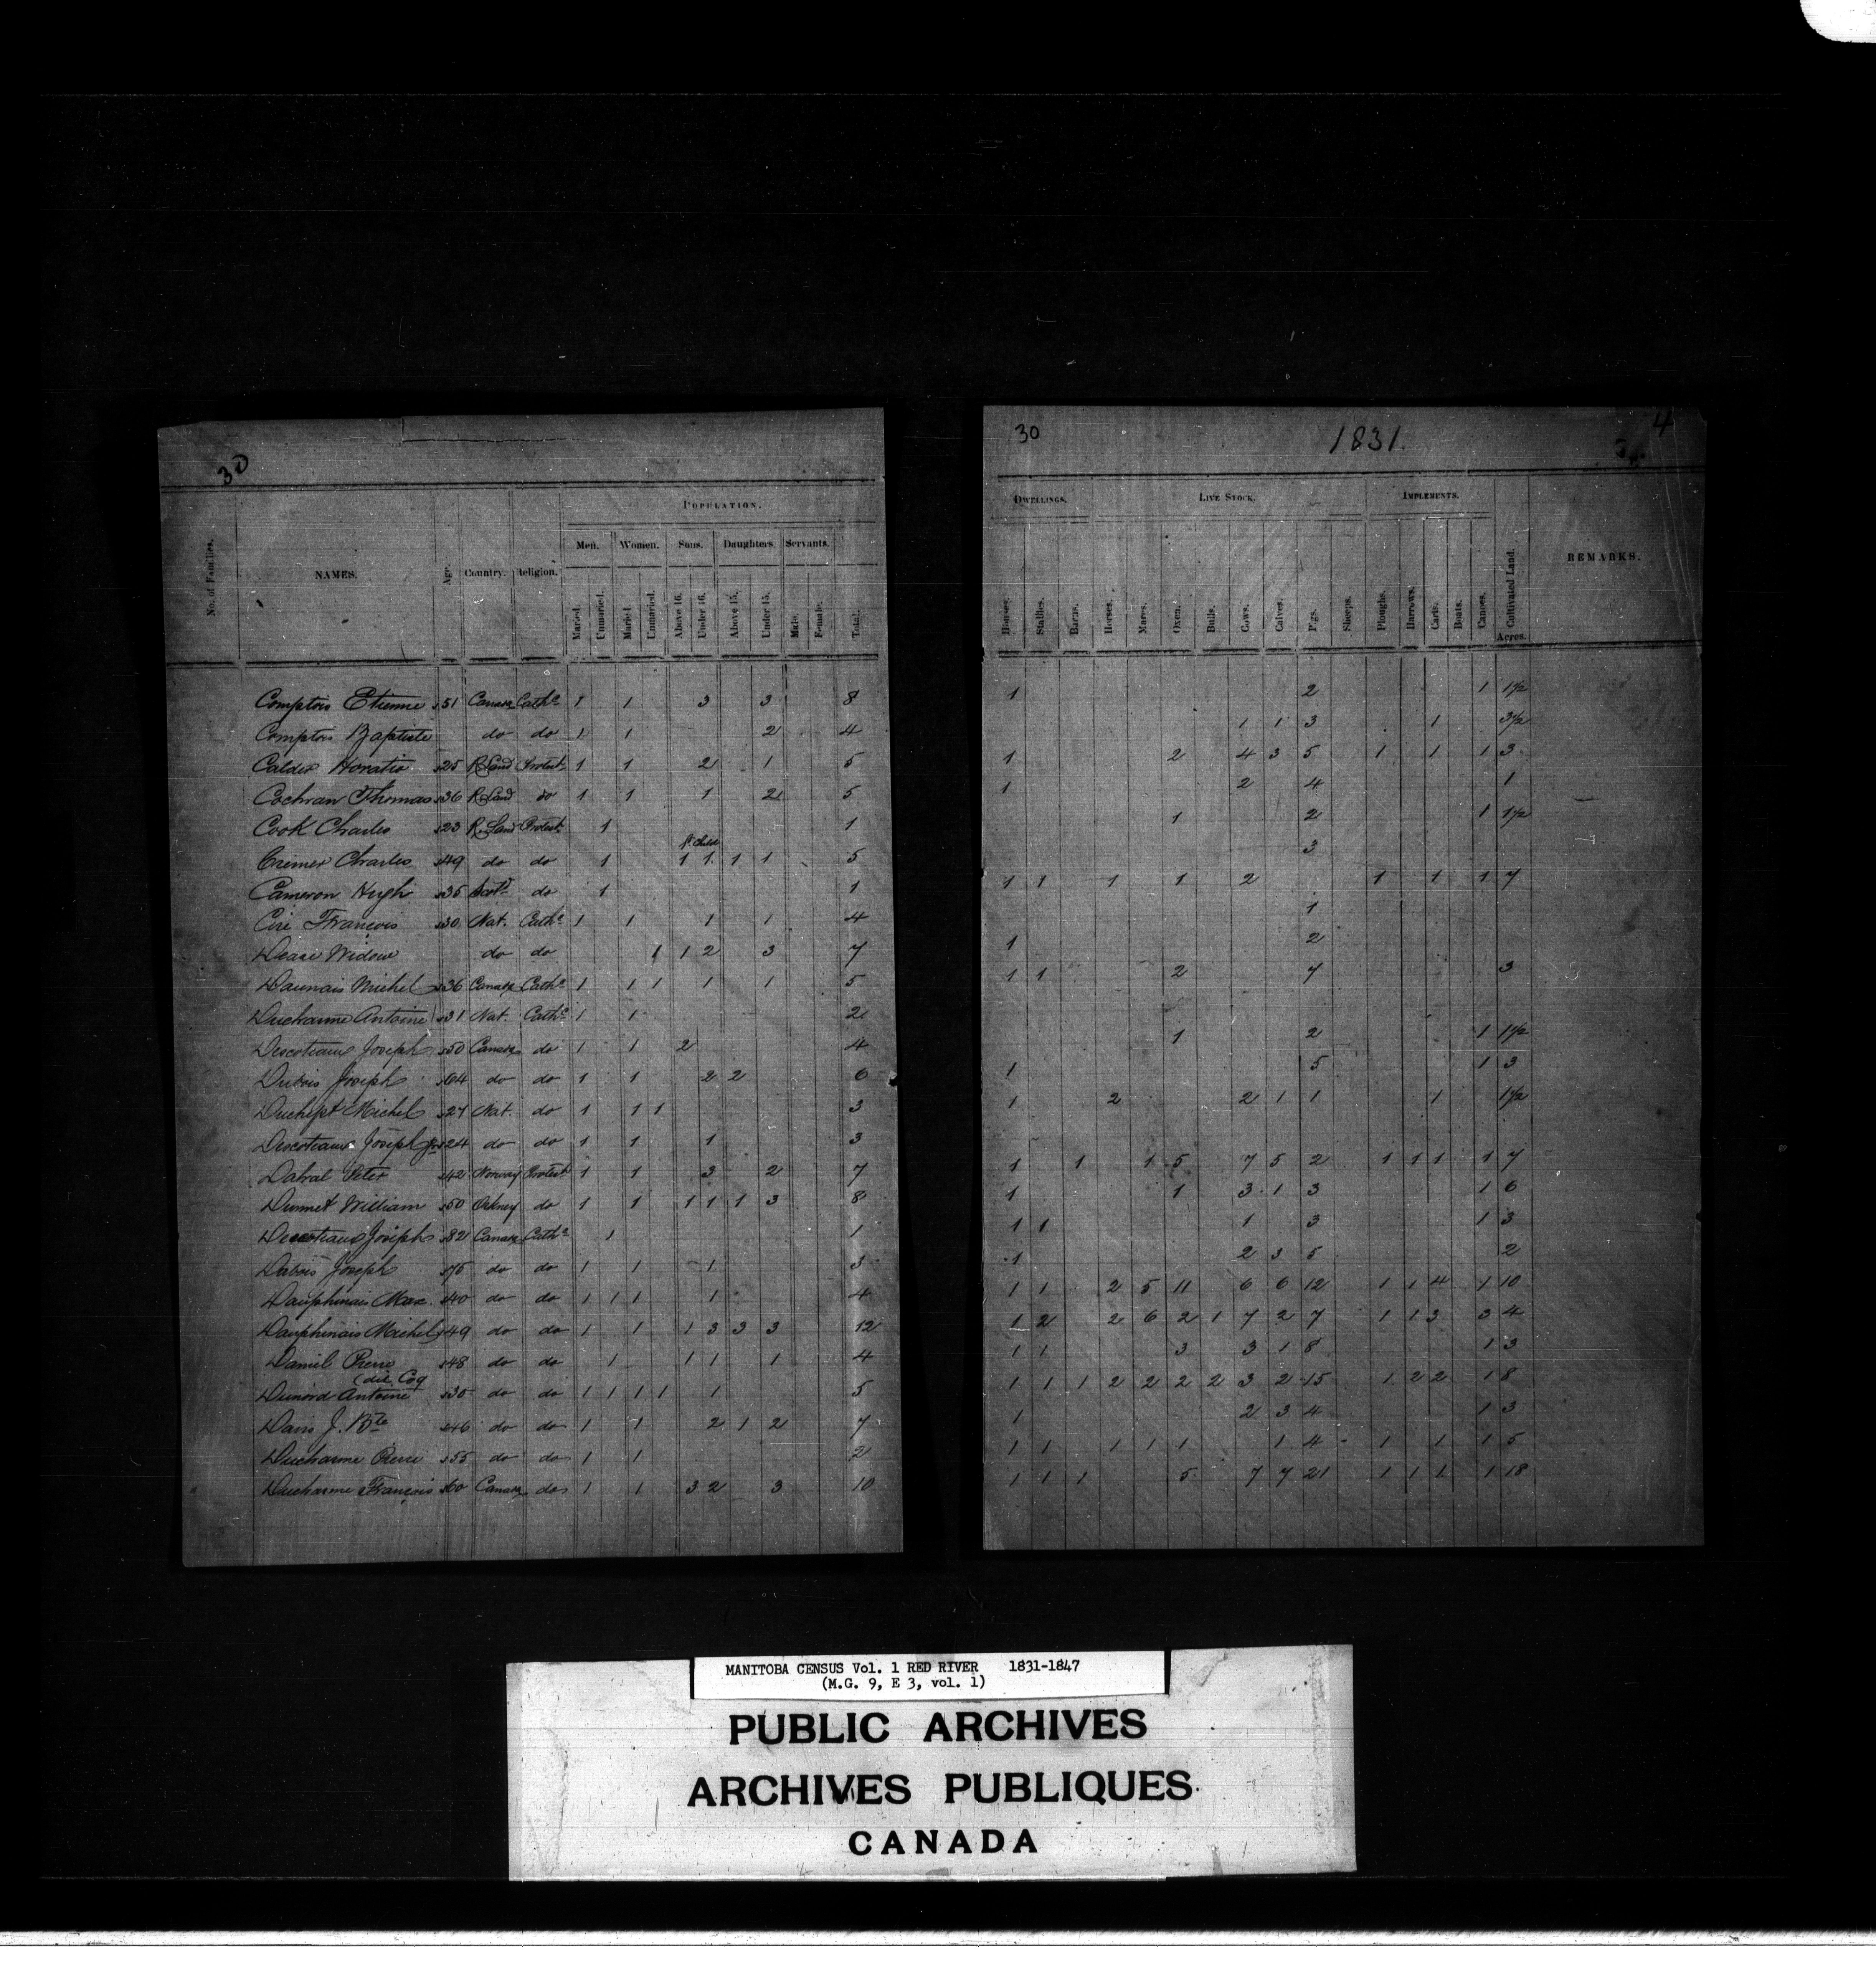 30
POPULATION.
Men. Women. Sons. Daughters. Servants.
No. of Families. NAMES. Age. Country. Religion. Married. Unmarried. Married. Unmarried. Above 16. Under 16. Above 15. Under 15. Male. Female. Total.
Comptois Etienne 51 Canada Cath 1 1 3 3 8
Comptois Baptiste do do 1 1 2 4
Calder Horatio 25 R Land Protest 1 1 2 1 5
Cochran Thomas 36 R Land do 1 1 1 2 5
Cook Charles 23 R Land Protest 1 1
Charles 49 do do 1 1 1 1 1 5
Cameron Hugh 35 Scotd do 1 1
Ciré François 30 Nat. Cath 1 1 1 1 4
Widow do do 1 1 2 3 7
Daunais Michel 36 Canada Cath 1 1 1 1 1 5
Ducharme Antoine 31 Nat. Cath 1 1 2
Descoteaux Joseph 50 Canada do 1 1 2 4
Dubois Joseph 64 do do 1 1 2 2 6
Michel 27 Nat. do 1 1 1 3
Descoteaux Joseph Jr 24 do do 1 1 1 3
Peter 42 Norway Protest 1 1 3 2 7
Dunnet William 50 Orkney do 1 1 1 1 1 3 8
Descoteaux Joseph 82 Canada Cath 1 1
Joseph 75 do do 1 1 1 3
Dauphinais Max. 40 do do 1 1 1 1 4
Dauphinais Michel 49 do do 1 1 1 3 3 3 12
Pierre 48 do do 1 1 1 1 4
(dit Coq
Dunord Antoine 35 do do 1 1 1 1 1 5
J. Bte 46 do do 1 1 2 1 2 7
Ducharme Pierre 55 do do 1 1 2
Ducharme François 60 Canada do 1 1 3 2 3 10
30 1831. 4
DWELLINGS. LIVE STOCK. IMPLEMENTS.
Houses. Stables. Barns. Horses. Mares. Oxen. Bulls. Cows. Calves. Pigs. Sheeps. Ploughs. Harrows. Carts. Boats. Canoes. Cultivated Land. REMARKS.
Acres.
1 2 1 1½
1 1 3 1 3½
1 2 4 3 5 1 1 1 3
1 2 4 1
1 2 1 1½
3
1 1 1 1 2 1 1 1 7
1
1 2
1 1 2 7 3
1 2 1 1½
1 5 1 3
1 2 2 1 1 1 1½
1 1 1 5 7 5 2 1 1 1 1 7
1 1 3 1 3 1 6
1 1 1 3 1 3
1 2 3 5 2
1 1 2 5 11 6 6 12 1 1 4 1 10
1 2 2 6 2 1 7 2 7 1 1 3 3 4
1 1 3 3 1 8 1 3
1 1 1 2 2 2 2 3 2 15 1 2 2 1 8
1 2 3 4 1 3
1 1 1 1 1 1 4 1 1 1 5
1 1 1 5 7 7 21 1 1 1 1 18
MANITOBA CENSUS Vol. 1 RED RIVER 1831-1847
(M.G. 9, E 3, vol. 1)
PUBLIC ARCHIVES
ARCHIVES PUBLIQUES
CANADA